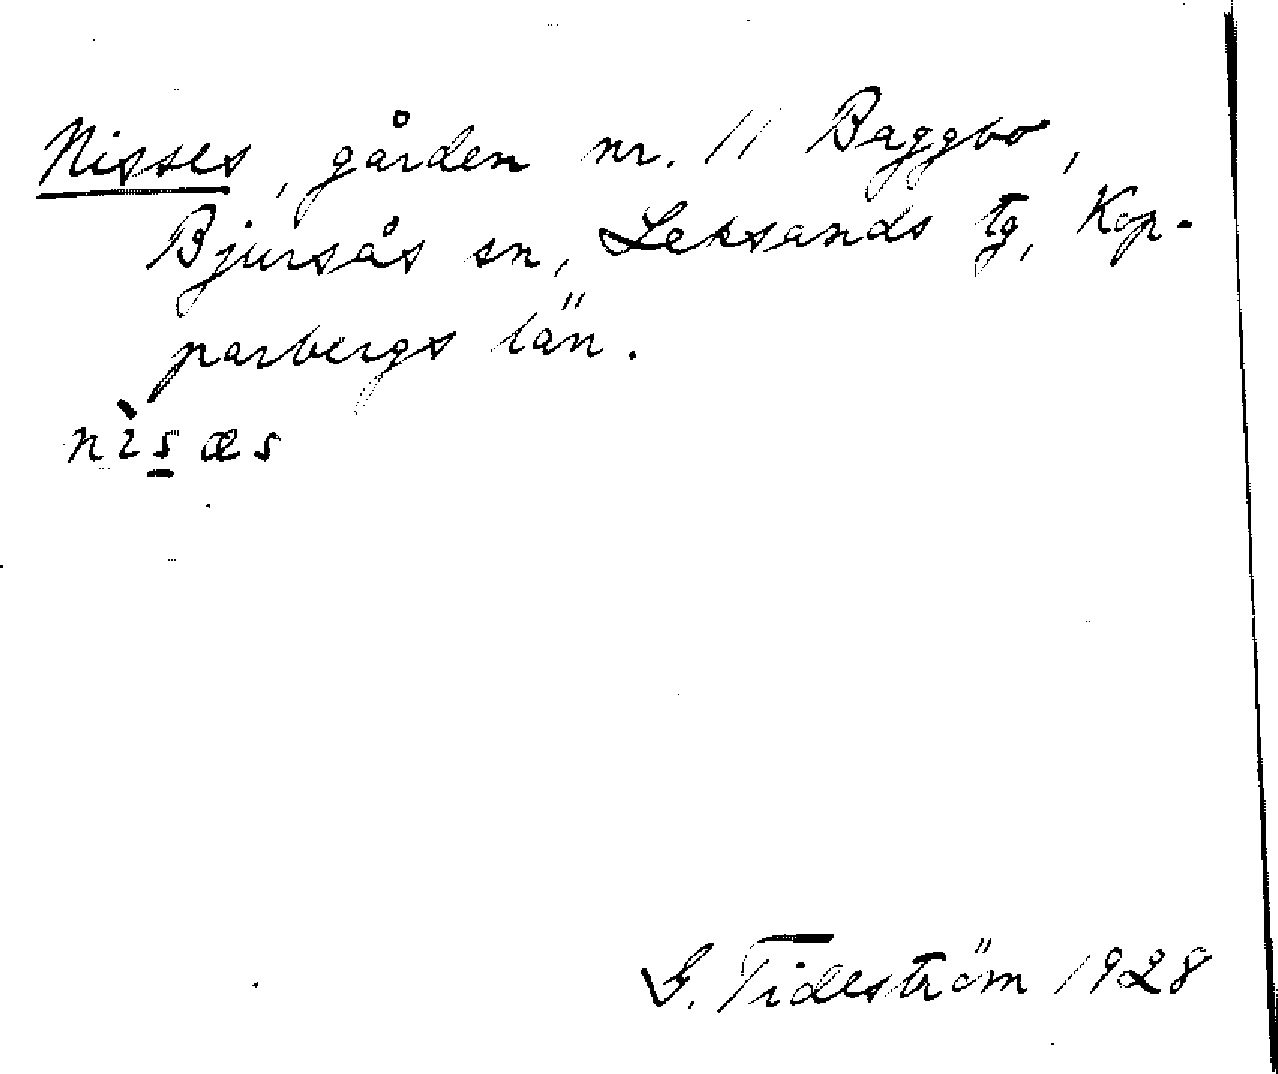 Nisses, gården nr. 11 Baggbo,
Bjursås sn, Leksands tg, Kop-
parbergs län.
nìs̲æs
G. Tideström 1928